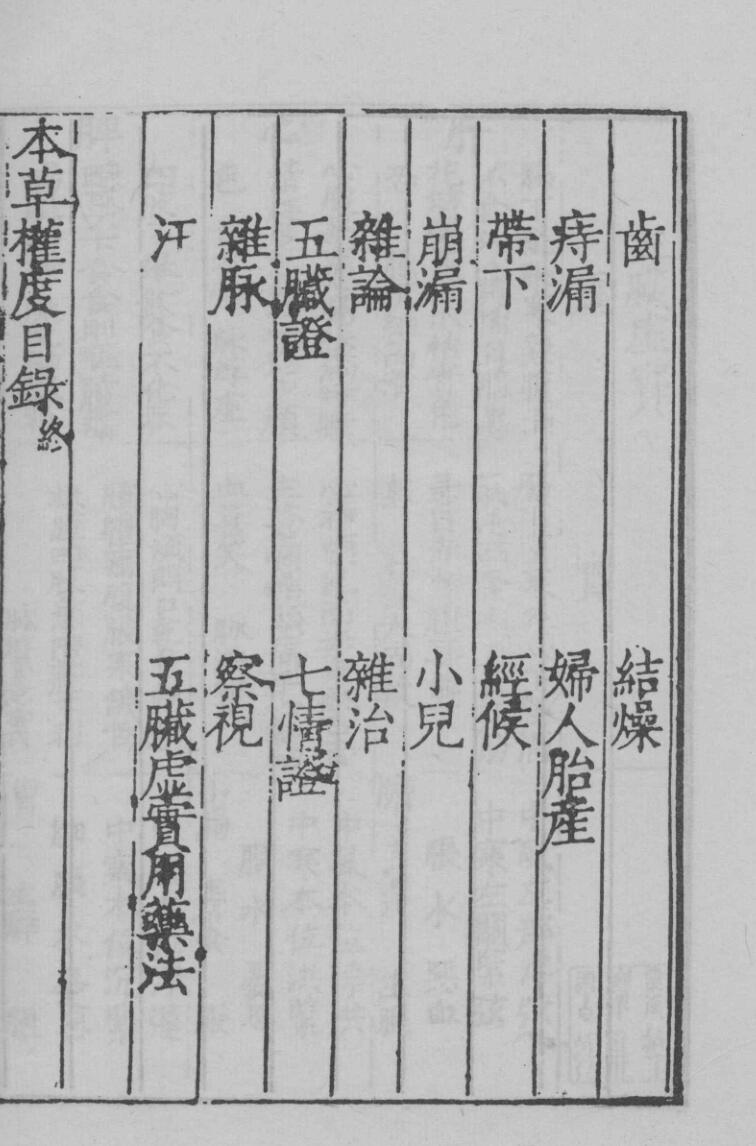 齒 結燥
痔漏 婦人胎産
帶下 經候
崩漏 小兒
雜論 雜治
五臟證 七情證
雜脉 察視
汗 五臟虚實用藥法
本草權度目錄終